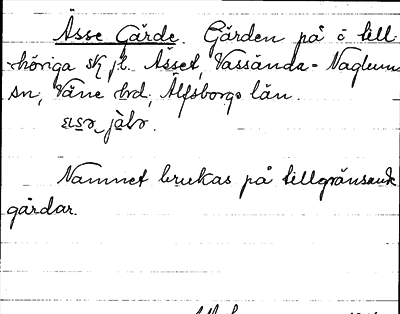 Åsse Gärde. Gärden på ö till-
höriga sk jb. Åsset, Vassända-Naglums
sn, Väne hrd, Älfsborgs län.
Namnet brukas på tillgränsande
gärdar.